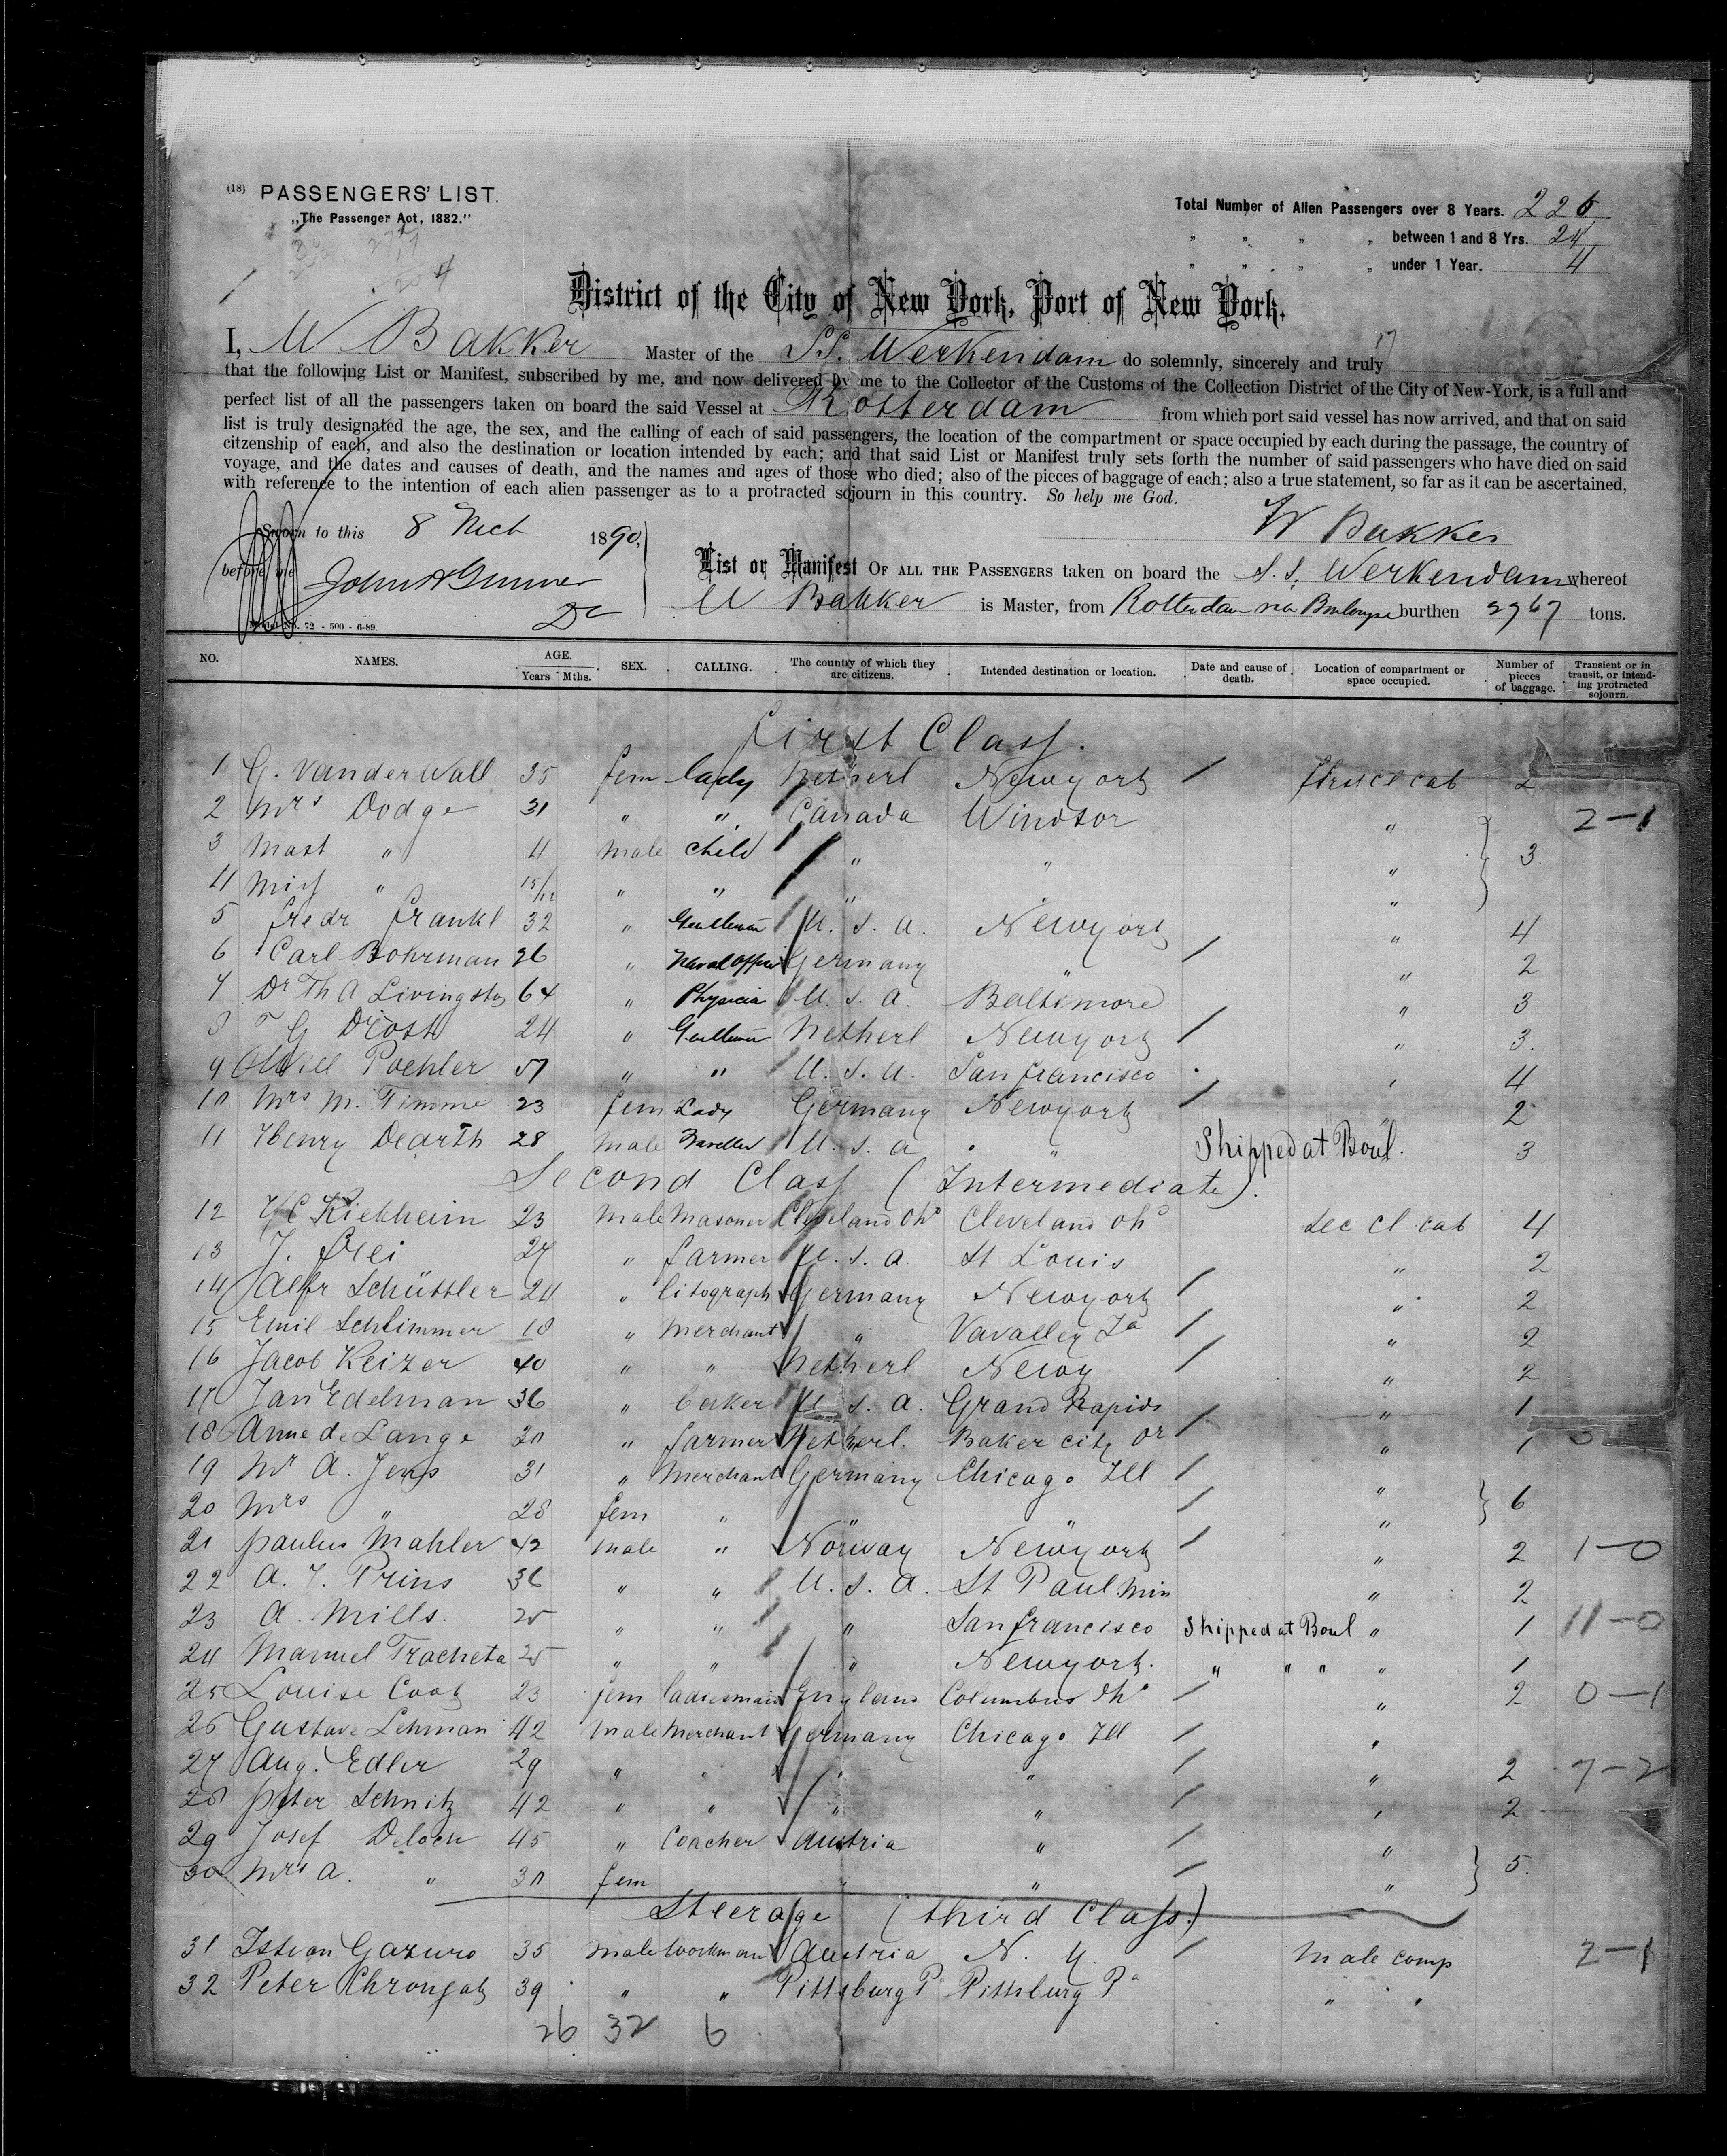 (18) PASSENGERS' LIST.
„The Passenger Act, 1882.”
Total Number of Alien Passengers over 8 Years. 226
„ „ „ „ between 1 and 8 Yrs. 24
„ „ „ „ under 1 Year. 4
District of the City of New York, Port of New York.
I, W Bakker Master of the SS. Werkendam do solemnly, sincerely and truly
that the following List or Manifest, subscribed by me, and now delivered by me to the Collector of the Customs of the Collection District of the City of New-York, is a full and
perfect list of all the passengers taken on board the said Vessel at Rotterdam from which port said vessel has now arrived, and that on said
list is truly designated the age, the sex, and the calling of each of said passengers, the location of the compartment or space occupied by each during the passage, the country of
citzenship of each, and also the destination or location intended by each; and that said List or Manifest truly sets forth the number of said passengers who have died on said
voyage, and the dates and causes of death, and the names and ages of those who died; also of the pieces of baggage of each; also a true statement, so far as it can be ascertained,
with reference to the intention of each alien passenger as to a protracted sojourn in this country. So help me God.
W Bakker
Sworn to this 8 Mch 1890,
before me
List or Manifest OF ALL THE PASSENGERS taken on board the S.S. Werkendam whereof
W Bakker is Master, from Rotterdam via Boulogne burthen 2967 tons.
72 - 500 - 6-89.
NO. NAMES. AGE. Years Mths. SEX. CALLING. The country of which they are citizens. Intended destination or location. Date and cause of death. Location of compartment or space occupied. Number of pieces of baggage. Transient or in transit, or intending protracted sojourn.
First Class.
1 G. Vanderwall 35 fem lady Netherl Newyork / first cl cab 2
2 Mrs Dodge 31 „ „ Canada Windsor „ 2-1
3 Mast „ 4 male child „ „ „ 3
4 Miss „ 15/12 „ „ „ „ „
5 fredr frankl 32 „ Gentleman U. S. A. Newyork „ 4
6 Carl Bohrman 26 „ Naval Officer Germany „ / „ 2
7 Dr Th A Livingston 64 „ Physician U. S. A. Baltimore „ 3
8 G Drost 24 „ Gentleman Netherl Newyork / „ 3.
9 Poehler 51 „ „ U. S. A. San francisco „ 4
10 Mrs M. Timme 23 fem Lady Germany Newyork / 2
11 Henry Dearth 28 male Traveller U. S. A „ Shipped at Boul. 3
Second Class (Intermediate).
12 Kiekheim 23 Male Masoner Cleveland Oho Cleveland Oho sec cl cab 4
13 J. frei 27 „ farmer U. S. A. St Louis „ 2
14 Alfr Schüttler 24 „ litograph Germany Newyork / „ 2
15 Emil Schlimmer 18 „ Merchant „ Vavalley Ia / „ 2
16 Jacob Keizer 40 „ „ Netherl Newy / „ 2
17 Jan Edelman 36 „ baker U. S. A. Grand Rapids „ 1
18 Anne de Lange 20 „ farmer Netherl. Baker city Or / „ 1
19 Mr A. Jens 31 „ Merchant Germany Chicago Ill / „ 6
20 Mrs „ 28 fem „ „ „ / „
21 paulus Mahler 42 male „ Norway Newyork / „ 2 1-0
22 A. J. Prins 36 „ „ U. S. A. St Paul Min „ 2
23 A. Mills. 25 „ „ „ San francisco Shipped at Boul „ 1 11-0
24 Manuel Tracheta 25 „ „ „ Newyork. „ „ „ „ 1
25 Louise Cook 23 fem ladiesmaid England Columbus Oho / „ 2 0-1
26 Gustave Lehman 42 Male Merchant Germany Chicago Ill / „
27 Aug. Edler 29 „ „ „ „ / „ 2 7-2
28 peter Schnitz 42 „ „ „ „ / „ 2
29 Josef Deloch 45 „ Coacher Austria „ / „ 5.
30 Mrs A. „ 30 fem „ „ / „
Steerage (third Class.)
31 Istvan Gazuro 35 male Workman Austria N. Y. / Male comp 2-1
32 Peter 39 „ „ Pittsburg Pa Pittsburg Pa „ „
26 32 6